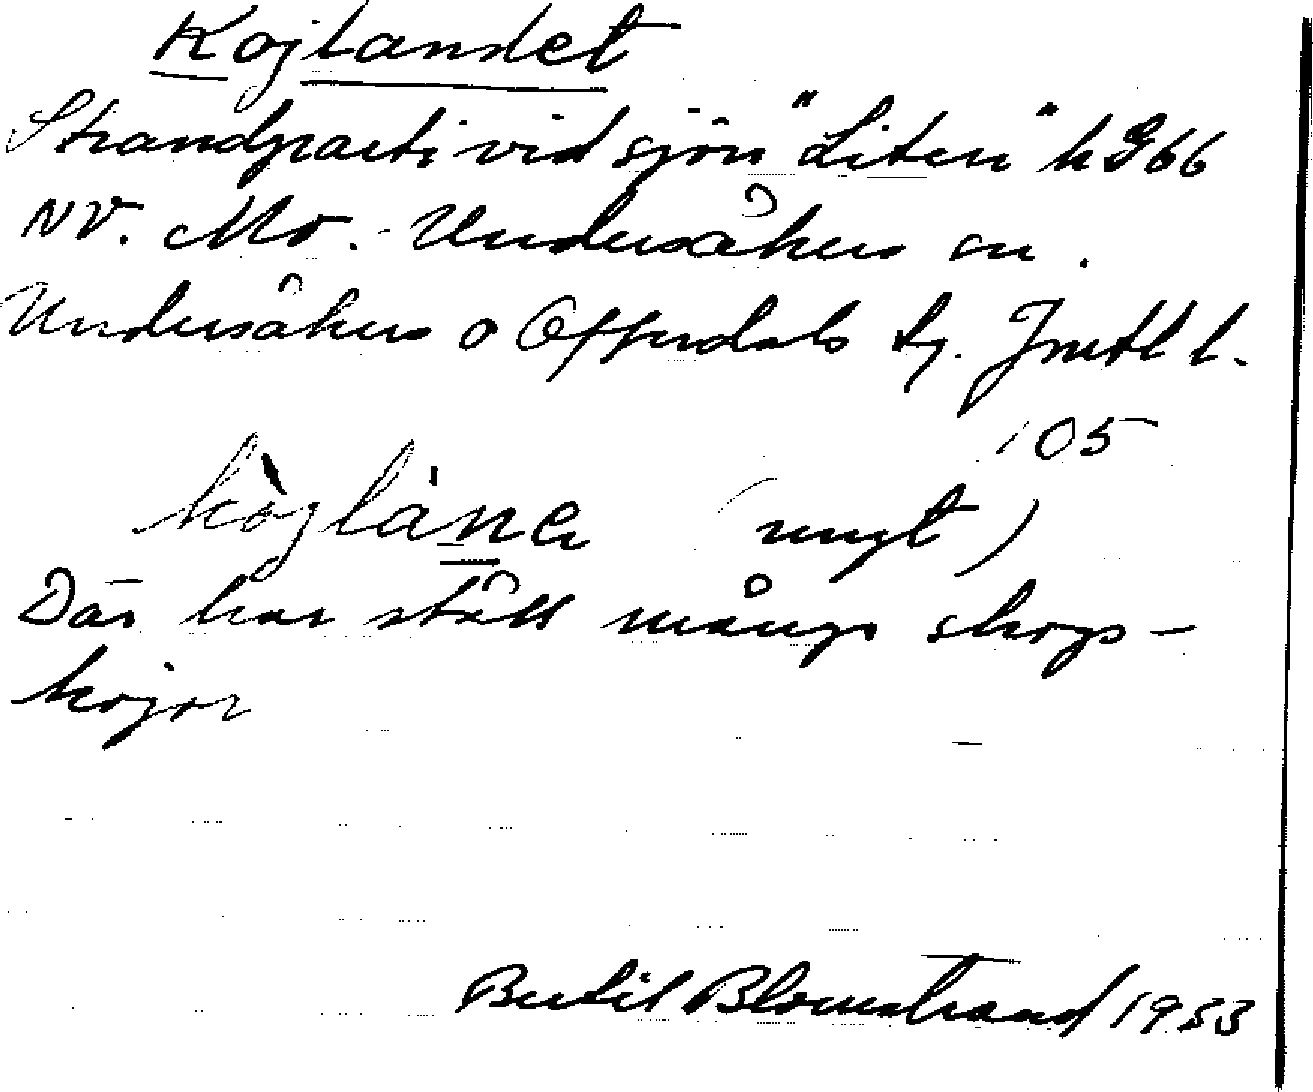 Kojlandet
Strandparti vid sjön "Liten" k G66
NV. Mo. Undersåkers sn.
Undersåkers o Offerdals tg. Jmtl l.
105
(yngt)
Där har stått många skogs-
kojor
Bertil Blomstrand 1953